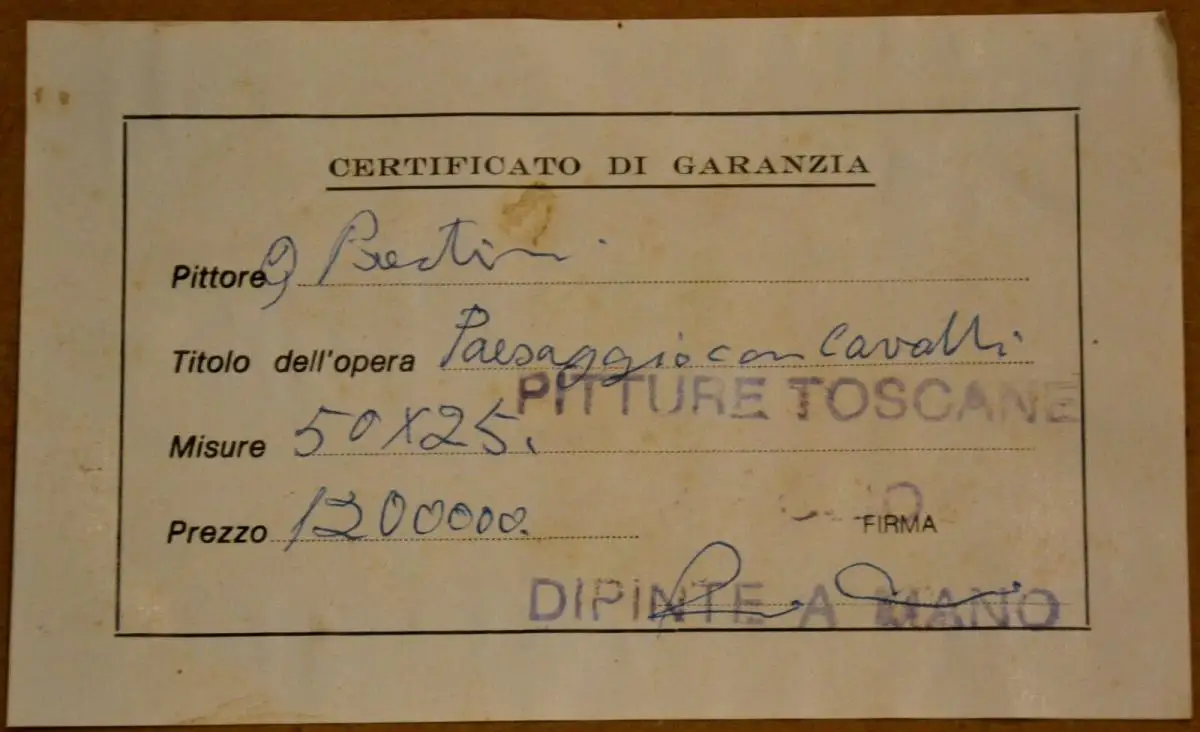 CERTIFICATO DI GARANZIA
Pittore G Bertini
Titolo dell'opera Paesaggio con Cavalli
PITTURE TOSCANE
Misure 50x25.
Prezzo 1200000.
FIRMA
DIPINTE A MANO